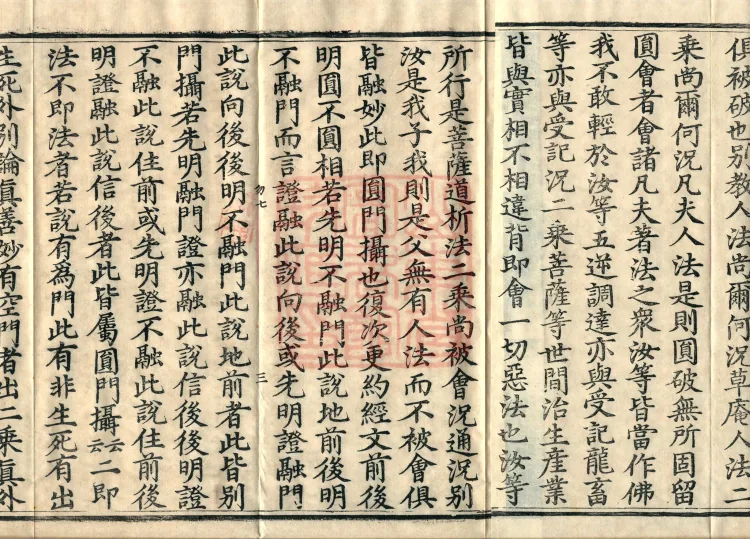 俱被破也別教人法尚爾何況草庵人法二
乘尚爾何況凡夫人法是則圓破無所固留
圓會者會諸凡夫著法之眾汝等皆當作佛
我不敢輕於汝等五逆調達亦與受記龍畜
等亦與受記況二乘菩薩等世間治生產業
皆與實相不相違背即會一切惡法也汝等
所行是菩薩道析法二乘尚被會況通況別
汝是我子我則是父無有人法而不被會俱
皆融妙此即圓門攝也復次更約經文前後
明圓不圓相若先明不融門此說地前後明
不融門而言證融此說向後或先明證融門
勿七 三
此說向後後明不融門此說地前者此皆別
門攝若先明融門證亦融此說信後後明證
不融此說住前或先明證不融此說住前後
明證融此說信後者此皆屬圓門攝云云二即
法不即法者若說有為門此有非生死有出
生死外別論真善妙有空門者出二乘真外